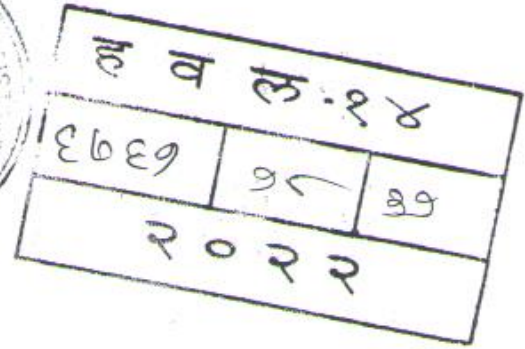 ह व ल-१४
६७६१ १८ ३१
२०२२